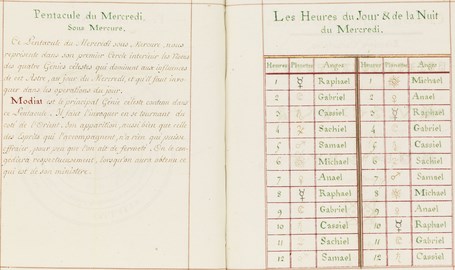 Pentacule du Mercredi.
Sous Mercure.
Ce Pentacule du Mercredi sous Mercure, nous
représente dans son premier Cercle intérieur les Noms
des quatre Génies célestes qui dominent aux influences
de cet Astre, au jour de Mercredi, et qu'il faut invo-
quer dans les opérations du jour.
Modiat est le principal Génie céleste contenu dans
ce Pentacule. Il faut l'invoquer en se tournant du
côté de l'Orient. Son apparition, aussi bien que celle
des Esprits qui l'accompagnent, n'a rien qui puisse
effrayer, pour peu que l'on ait de fermeté. On le con-
gédiera respectueusement, lorsqu'on aura obtenu ce
qui est de son ministère.
Les Heures du Jour & de la Nuit
du Mercredi.
Heures Planète Anges Heures Planète Anges
1 ☿ Raphael 1 Michael
2 Gabriel 2 Anael
3 Cassiel 3 ☿ Raphael
4 Sachiel 4 Gabriel
5 Samael 5 Cassiel
6 Michael 6 Sachiel
7 Anael 7 ♂ Samael
8 ☿ Raphael 8 Michael
9 Gabriel 9 Anael
10 Cassiel 10 ☿ Raphael
11 Sachiel 11 Gabriel
12 Samael 12 Cassiel